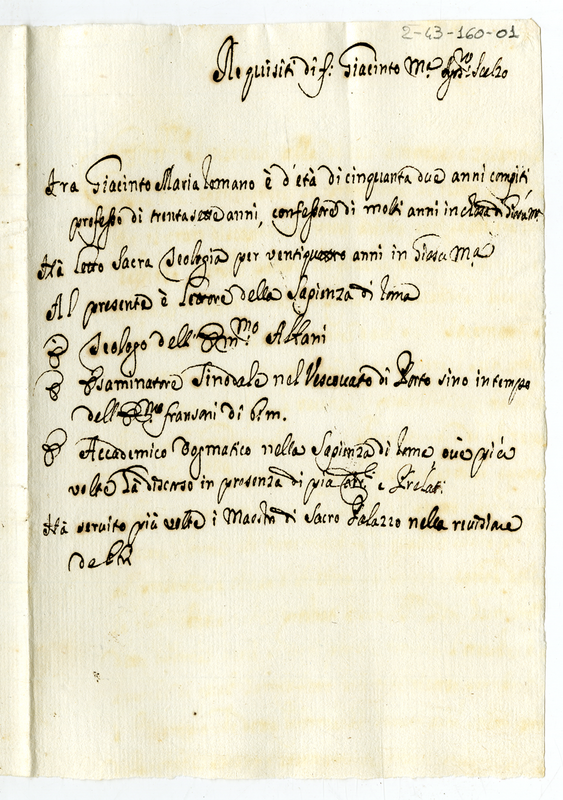 2-43-160-01
Requisiti di f: Giacinto Ma: Scalzo
Fra Giacinto Maria Romano è d'età di cinquanta due anni compiti
professo di trentasette anni, confessore di molti anni in
Hà letto Sacra Teologia per ventiquattro anni in Giesù Ma
Al presente è lettore della Sapienza di Roma
È Teologo dell' Emmo Albani
È Esaminatore Sinodale nel Vescovato di Porto sino in tempo
dell' Emo fransoni di b: m.
È Accademico Dogmatico nella Sapienza di Roma ove più
volte hà discorso in presenza di più e Prelati
Hà servito più volte i Maestri di Sacro Palazzo nella revisione
de libri